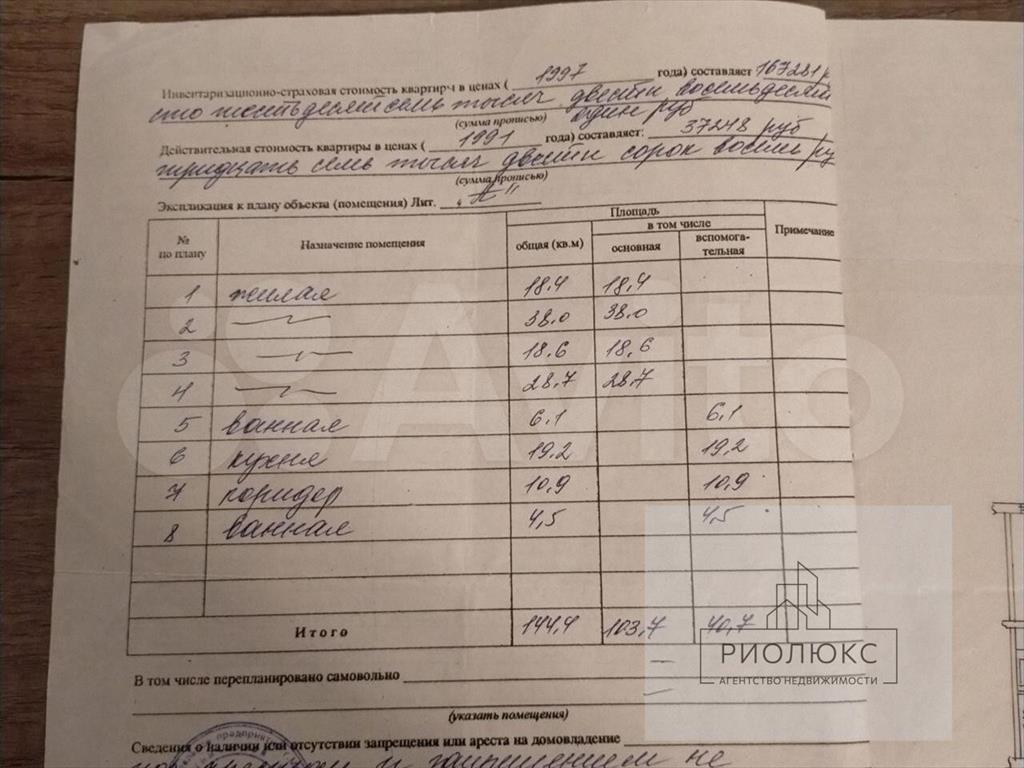 Инвентаризационно-страховая стоимость квартиры в ценах ( 1997 года) составляет 167281 р
сто шестьдесят семь тысяч двести восемьдесят
один руб
(сумма прописью)
Действительная стоимость квартиры в ценах ( 1991 года) составляет: 37248 руб
тридцать семь тысяч двести сорок восемь ру
(сумма прописью)
Экспликация к плану объекта (помещения) Лит.
№ по плану Назначение помещения Площадь Примечание
общая (кв.м) в том числе
основная вспомога-тельная
1 жилая 18,4 18,4
2 —"— 38,0 38,0
3 —"— 18,6 18,6
4 —"— 28,7 28,7
5 ванная 6,1 6,1
6 кухня 19,2 19,2
7 коридор 10,9 10,9
8 ванная 4,5 4,5
Итого 144,4 103,7 40,7
В том числе перепланировано самовольно
(указать помещения)
Сведения о наличии или отсутствии запрещения или ареста на домовладение
и запрещением не
предприят
Avito
РИОЛЮКС
АГЕНТСТВО НЕДВИЖИМОСТИ